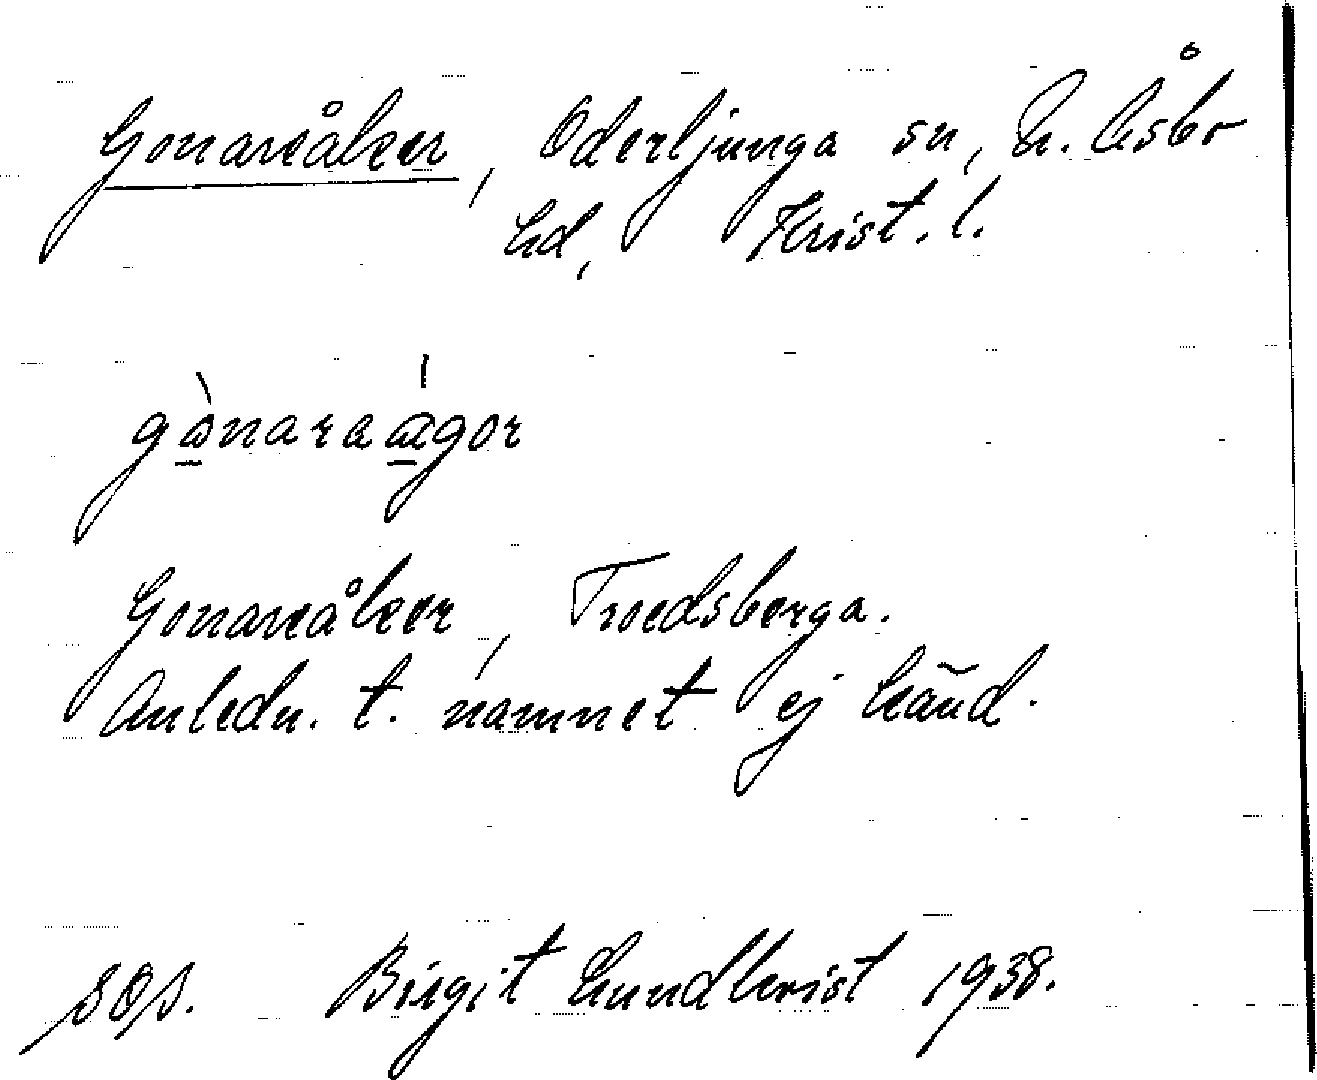 Gonareåker, Oderljunga sn, N. Åsbo
hd, Krist. l.
gònaraágor
Gonareåker, Troedsberga.
Anledn. t. namnet ej känd.
SOS. Birgit Lundkvist 1938.